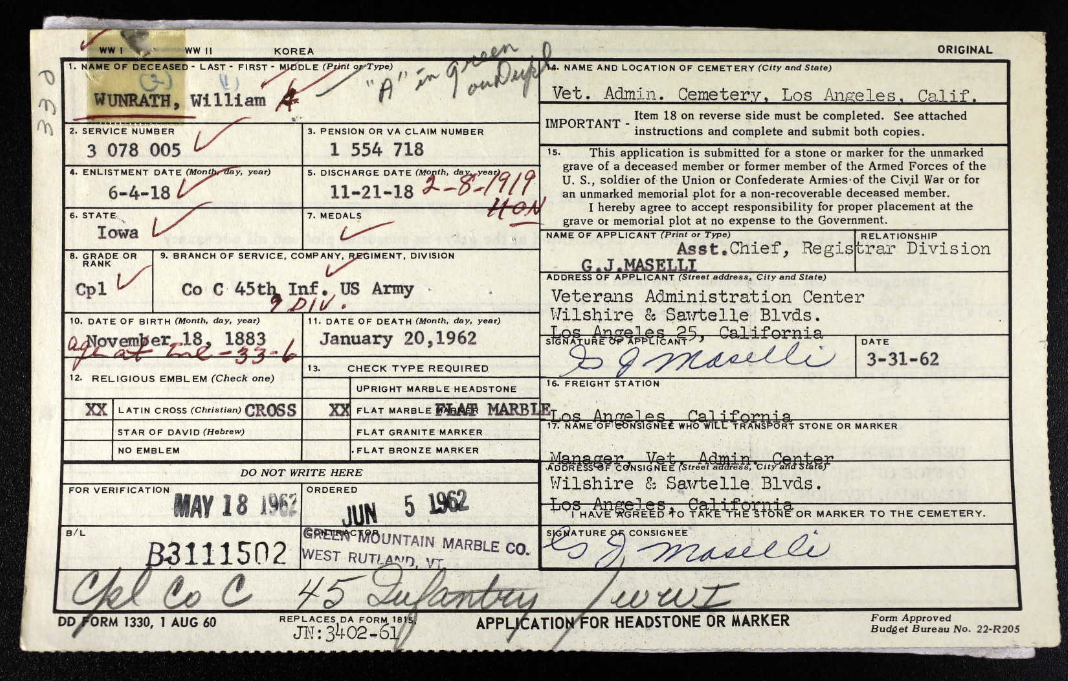 WW I WW II KOREA ORIGINAL
330
1. NAME OF DECEASED - LAST - FIRST - MIDDLE (Print or Type)
(2) (1)
WUNRATH, William A
"A" in green
on Dupl
2. SERVICE NUMBER
3 078 005
3. PENSION OR VA CLAIM NUMBER
1 554 718
4. ENLISTMENT DATE (Month, day, year)
6-4-18
5. DISCHARGE DATE (Month, day, year)
11-21-18 2-8-1919
HON
6. STATE
Iowa
7. MEDALS
8. GRADE OR RANK
Cpl
9. BRANCH OF SERVICE, COMPANY, REGIMENT, DIVISION
Co C 45th Inf. US Army
9 DIV.
10. DATE OF BIRTH (Month, day, year)
November 18, 1883
age at Enl-33-6
11. DATE OF DEATH (Month, day, year)
January 20,1962
12. RELIGIOUS EMBLEM (Check one)
XX LATIN CROSS (Christian) CROSS
STAR OF DAVID (Hebrew)
NO EMBLEM
13. CHECK TYPE REQUIRED
UPRIGHT MARBLE HEADSTONE
XX FLAT MARBLE MARKER FLAT MARBLE
FLAT GRANITE MARKER
FLAT BRONZE MARKER
DO NOT WRITE HERE
FOR VERIFICATION
MAY 18 1962
ORDERED
JUN 5 1962
B/L
B3111502
CONTRACTOR
GREEN MOUNTAIN MARBLE CO.
WEST RUTLAND, VT.
14. NAME AND LOCATION OF CEMETERY (City and State)
Vet. Admin. Cemetery, Los Angeles, Calif.
IMPORTANT - Item 18 on reverse side must be completed. See attached
instructions and complete and submit both copies.
15. This application is submitted for a stone or marker for the unmarked
grave of a deceased member or former member of the Armed Forces of the
U. S., soldier of the Union or Confederate Armies of the Civil War or for
an unmarked memorial plot for a non-recoverable deceased member.
I hereby agree to accept responsibility for proper placement at the
grave or memorial plot at no expense to the Government.
NAME OF APPLICANT (Print or Type) RELATIONSHIP
Asst.Chief, Registrar Division
G.J.MASELLI
ADDRESS OF APPLICANT (Street address, City and State)
Veterans Administration Center
Wilshire & Sawtelle Blvds.
Los Angeles 25, California
SIGNATURE OF APPLICANT
G J Maselli
DATE
3-31-62
16. FREIGHT STATION
Los Angeles, California
17. NAME OF CONSIGNEE WHO WILL TRANSPORT STONE OR MARKER
Manager, Vet Admin Center
ADDRESS OF CONSIGNEE (Street address, City and State)
Wilshire & Sawtelle Blvds.
Los Angeles, California
I HAVE AGREED TO TAKE THE STONE OR MARKER TO THE CEMETERY.
SIGNATURE OF CONSIGNEE
G J Maselli
Cpl Co C 45 Infantry / WWI
DD FORM 1330, 1 AUG 60
REPLACES DA FORM 1815,
JN:3402-61
APPLICATION FOR HEADSTONE OR MARKER
Form Approved
Budget Bureau No. 22-R205